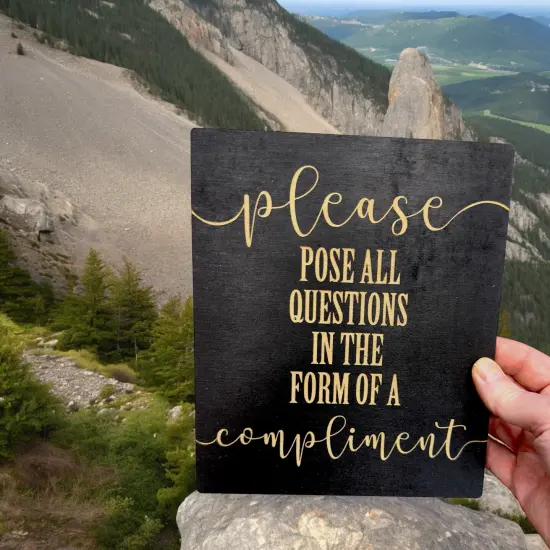 please
POSE ALL
QUESTIONS
IN THE
FORM OF A
compliment